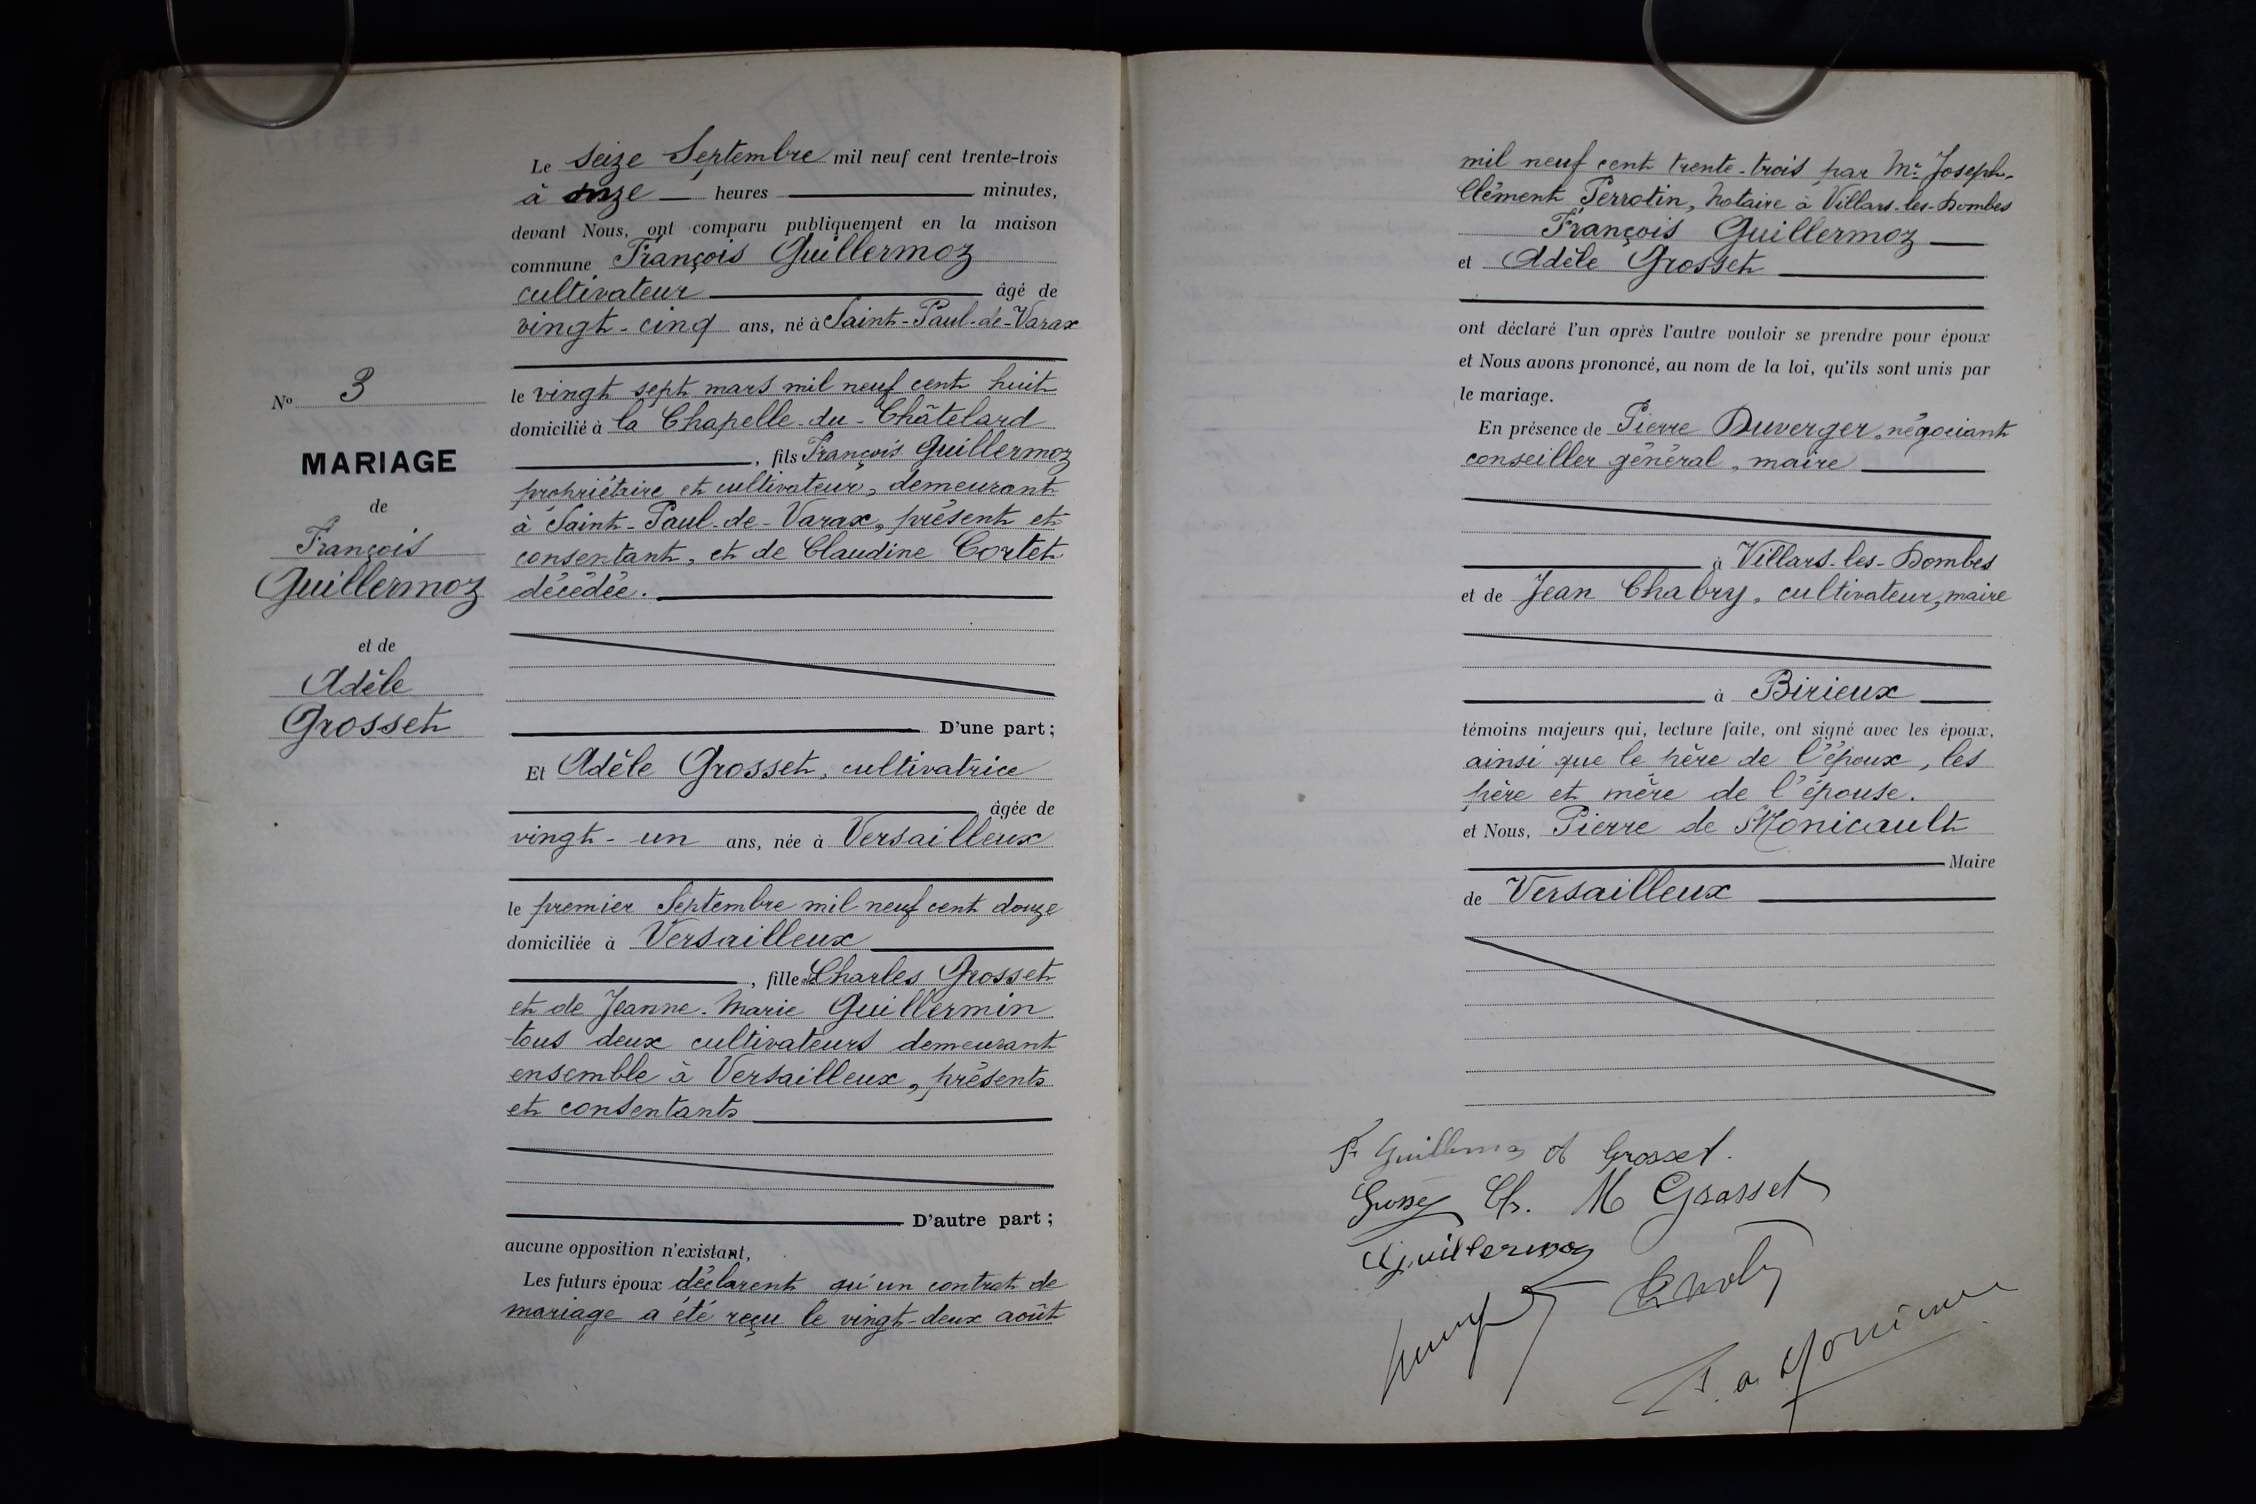 Le seize Septembre mil neuf cent trente-trois
à onze heures minutes,
devant Nous, ont comparu publiquement en la maison
commune François Guillermoz
cultivateur âgé de
vingt-cinq ans, né à Saint-Paul-de-Varax
le vingt sept mars mil neuf cent huit
domicilié à la Chapelle-du-Châtelard
, fils François Guillermoz
propriétaire et cultivateur, demeurant
à Saint-Paul-de-Varax, présent et
consentant, et de Claudine Cortet
décédée.
D'une part;
Et Adèle Grosset, cultivatrice
âgée de
vingt-un ans, née à Versailleux
le premier Septembre mil neuf cent douze
domiciliée à Versailleux
, fille de Charles Grosset
et de Jeanne-Marie Guillermin
tous deux cultivateurs demeurant
ensemble à Versailleux, présents
et consentants
D'autre part;
aucune opposition n'existant,
Les futurs époux déclarent qu'un contrat de
mariage a été reçu le vingt-deux août
No 3
MARIAGE
de
François
Guillermoz
et de
Adèle
Grosset
mil neuf cent trente-trois par Mr Joseph-
Clément Perrotin, Notaire à Villars-les-Dombes
François Guillermoz
et Adèle Grosset
ont déclaré l'un après l'autre vouloir se prendre pour époux
et Nous avons prononcé, au nom de la loi, qu'ils sont unis par
le mariage.
En présence de Pierre Duverger, négociant
conseiller général, maire
à Villars-les-Dombes
et de Jean Chabry, cultivateur, maire
à Birieux
témoins majeurs qui, lecture faite, ont signé avec les époux,
ainsi que le père de l'époux, les
père et mère de l'épouse.
et Nous, Pierre de Monicault
Maire
de Versailleux
F Guillermoz A Grosset.
Grosset Ch. M Grosset
Guillermoz